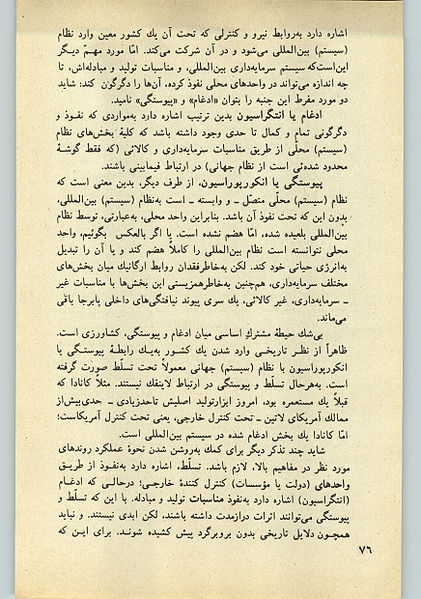 اشاره دارد به‌روابط نیرو و کنترلی که تحت آن یك کشور معین وارد نظام
(سیستم) بین‌المللی می‌شود و در آن شرکت می‌کند. امّا مورد مهـمّ دیـگر
این‌است‌که سیستم سرمایه‌داری بین‌المللی، و مناسبات تولید و مبادله‌اش، تا
چه اندازه می‌تواند در واحدهای محلی نفوذ کرده، آن‌ها را دگرگون کند؛ شاید
دو مورد مفرط این جنبه را بتوان «ادغام» و «پیوستگی» نامید.
ادغام یا انتگراسیون بدین ترتیب اشاره دارد به‌مواردی که نفـوذ و
دگرگونی تمام و کمال تا حدی وجود داشته باشد که کلیهٔ بخش‌های نظام
(سیستم) محلّی از طریق مناسبات سرمایه‌داری و کالائی (که فقط گوشهٔ
محدود شده‌ئی است از نظام جهانی) در ارتباط فیمابینی باشند.
پیوستگی یا انکورپوراسیون، از طرف دیگر، بدین معنی است که
نظام (سیستم) محلّی متصل ـ و وابسته ـ است به‌نظام (سیستم) بین‌المللی،
بدون این که تحت نفوذ آن باشد. بنابراین واحد محلی، به‌عبارتی، توسط نظام
بین‌المللی بلعیده شده، امّا هضم نشده است. یا اگر بالعکس بگوئیم، واحد
محلی نتوانسته است نظام بین‌المللی را کاملاً هضم کند و یا آن را تبدیل
به‌انرژی حیاتی خود کند. لکن به‌خاطرفقدان روابط ارگانیك میان بخش‌های
مختلف سرمایه‌داری، هم‌چنین به‌خاطرهمزیستی این بخش‌ها با مناسبات غیر
ـ سرمایه‌داری، غیر کالائی، یك سری پیوند نیافتگی‌های داخلی پابرجا باقی
می‌ماند.
بی‌شك حیطهٔ مشترك اساسی میان ادغام و پیوستگی، کشاورزی است.
ظاهراً از نظـر تاریخـی وارد شدن یك کشـور به‌یـك رابطـهٔ پیوستـگی یا
انکورپوراسیون با نظام (سیستم) جهانی معمولاً تحت تسلّط صورت گرفته
است. به‌هرحال تسلّط و پیوستگی در ارتباط لاینفك نیستند. مثلاً کانادا که
قبلاً یك مستعمره بود، امروز ابزارتولید اصلیش تاحدزیادی ـ حدی‌بیش‌از
ممالك آمریکای لاتین ـ تحت کنترل خارجی، یعنی تحت کنترل آمریکاست؛
امّا کانادا یك بخش ادغام شده در سیستم بین‌المللی است.
شاید چند تذکر دیگر برای کمك به‌روشن شدن نحوهٔ عملکرد روندهای
مورد نظر در مفاهیم بالا، لازم باشد. تسلّط، اشاره دارد به‌نفـوذ از طریـق
واحدهای (دولت یا مؤسسات) کنترل کنندهٔ خارجی؛ درحالـی که ادغـام
(انتگراسیون) اشاره دارد به‌نفوذ مناسبات تولید و مبادله. با این که تسلّط و
پیوستگی می‌توانند اثرات درازمدت داشته باشند، لکن ابدی نیستند. و نباید
همچـون دلایل تاریخی بدون بروبرگرد پیش کشیده شونـد. برای ایـن کـه
۷۶